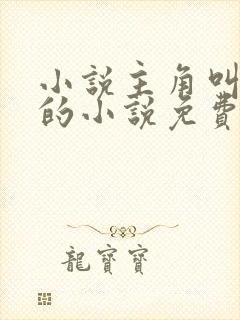 小說主角叫
的小說免費
龍寶寶